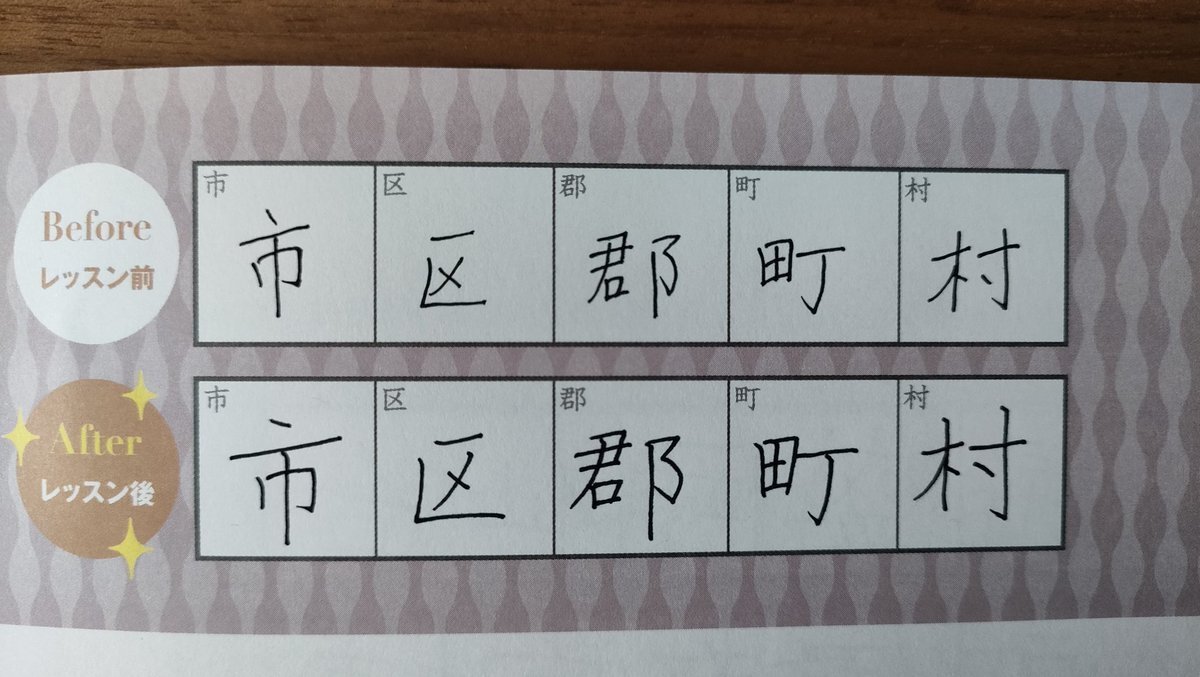 市 区 郡 町 村
Before
レッスン前
市 区 郡 町 村
市 区 郡 町 村
After
レッスン後
市 区 郡 町 村